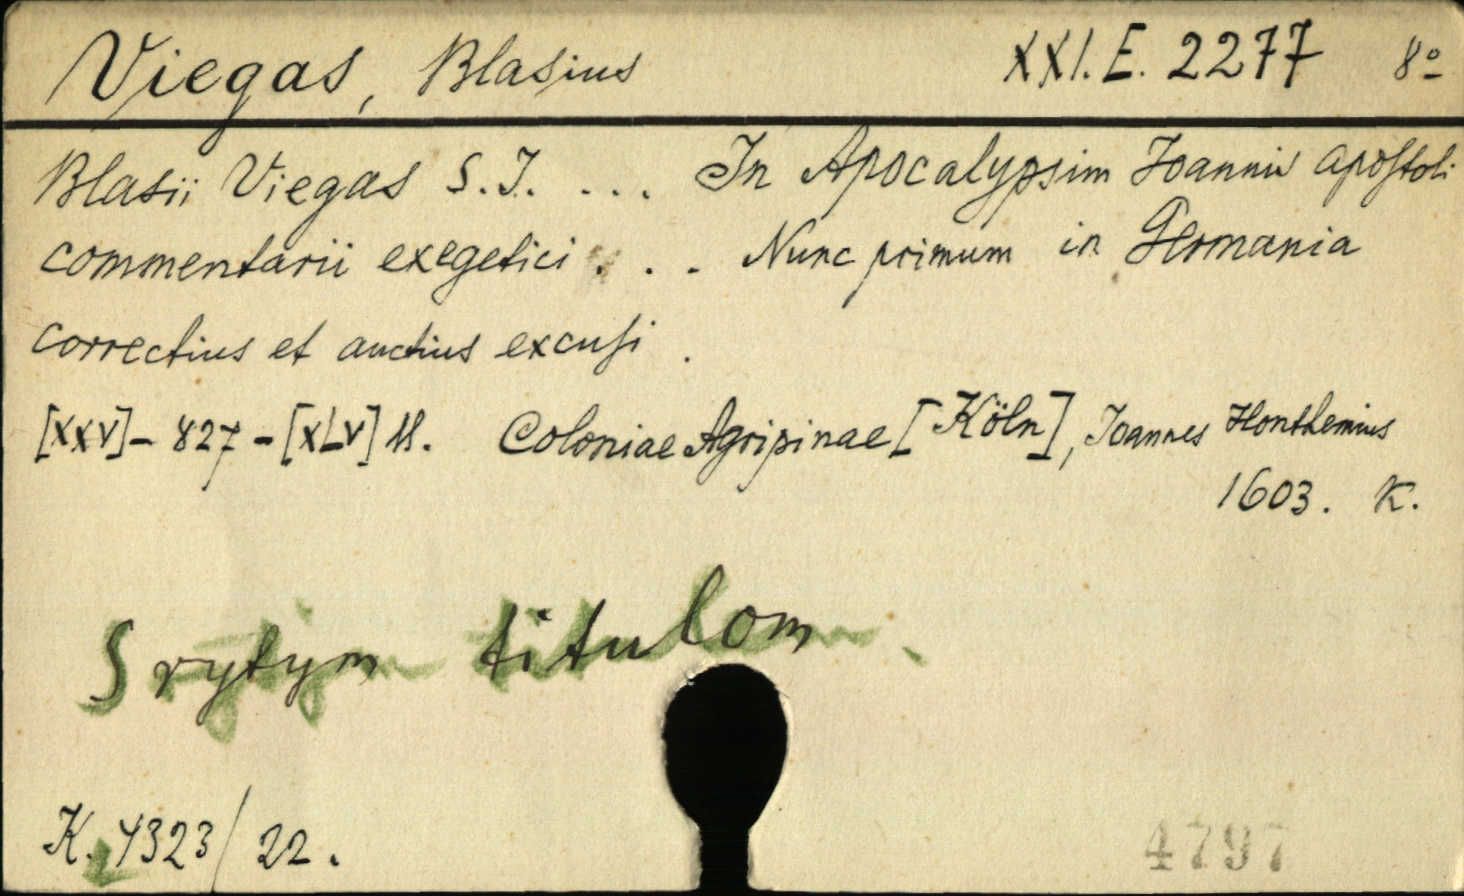 Viegas, Blasius XXI. E. 2277 8º
Blasii Viegas S. J. ... In Apocalypsim Joannis apostoli
commentarii exegetici . . . Nunc primum in Germania
correctius et auctius excusi .
[XXV] - 827 - [XLV] ll. Coloniae Agripinae [Köln], Joannes Honthemius
1603. K.
S rytym titulom
K. 4323/22.
4797